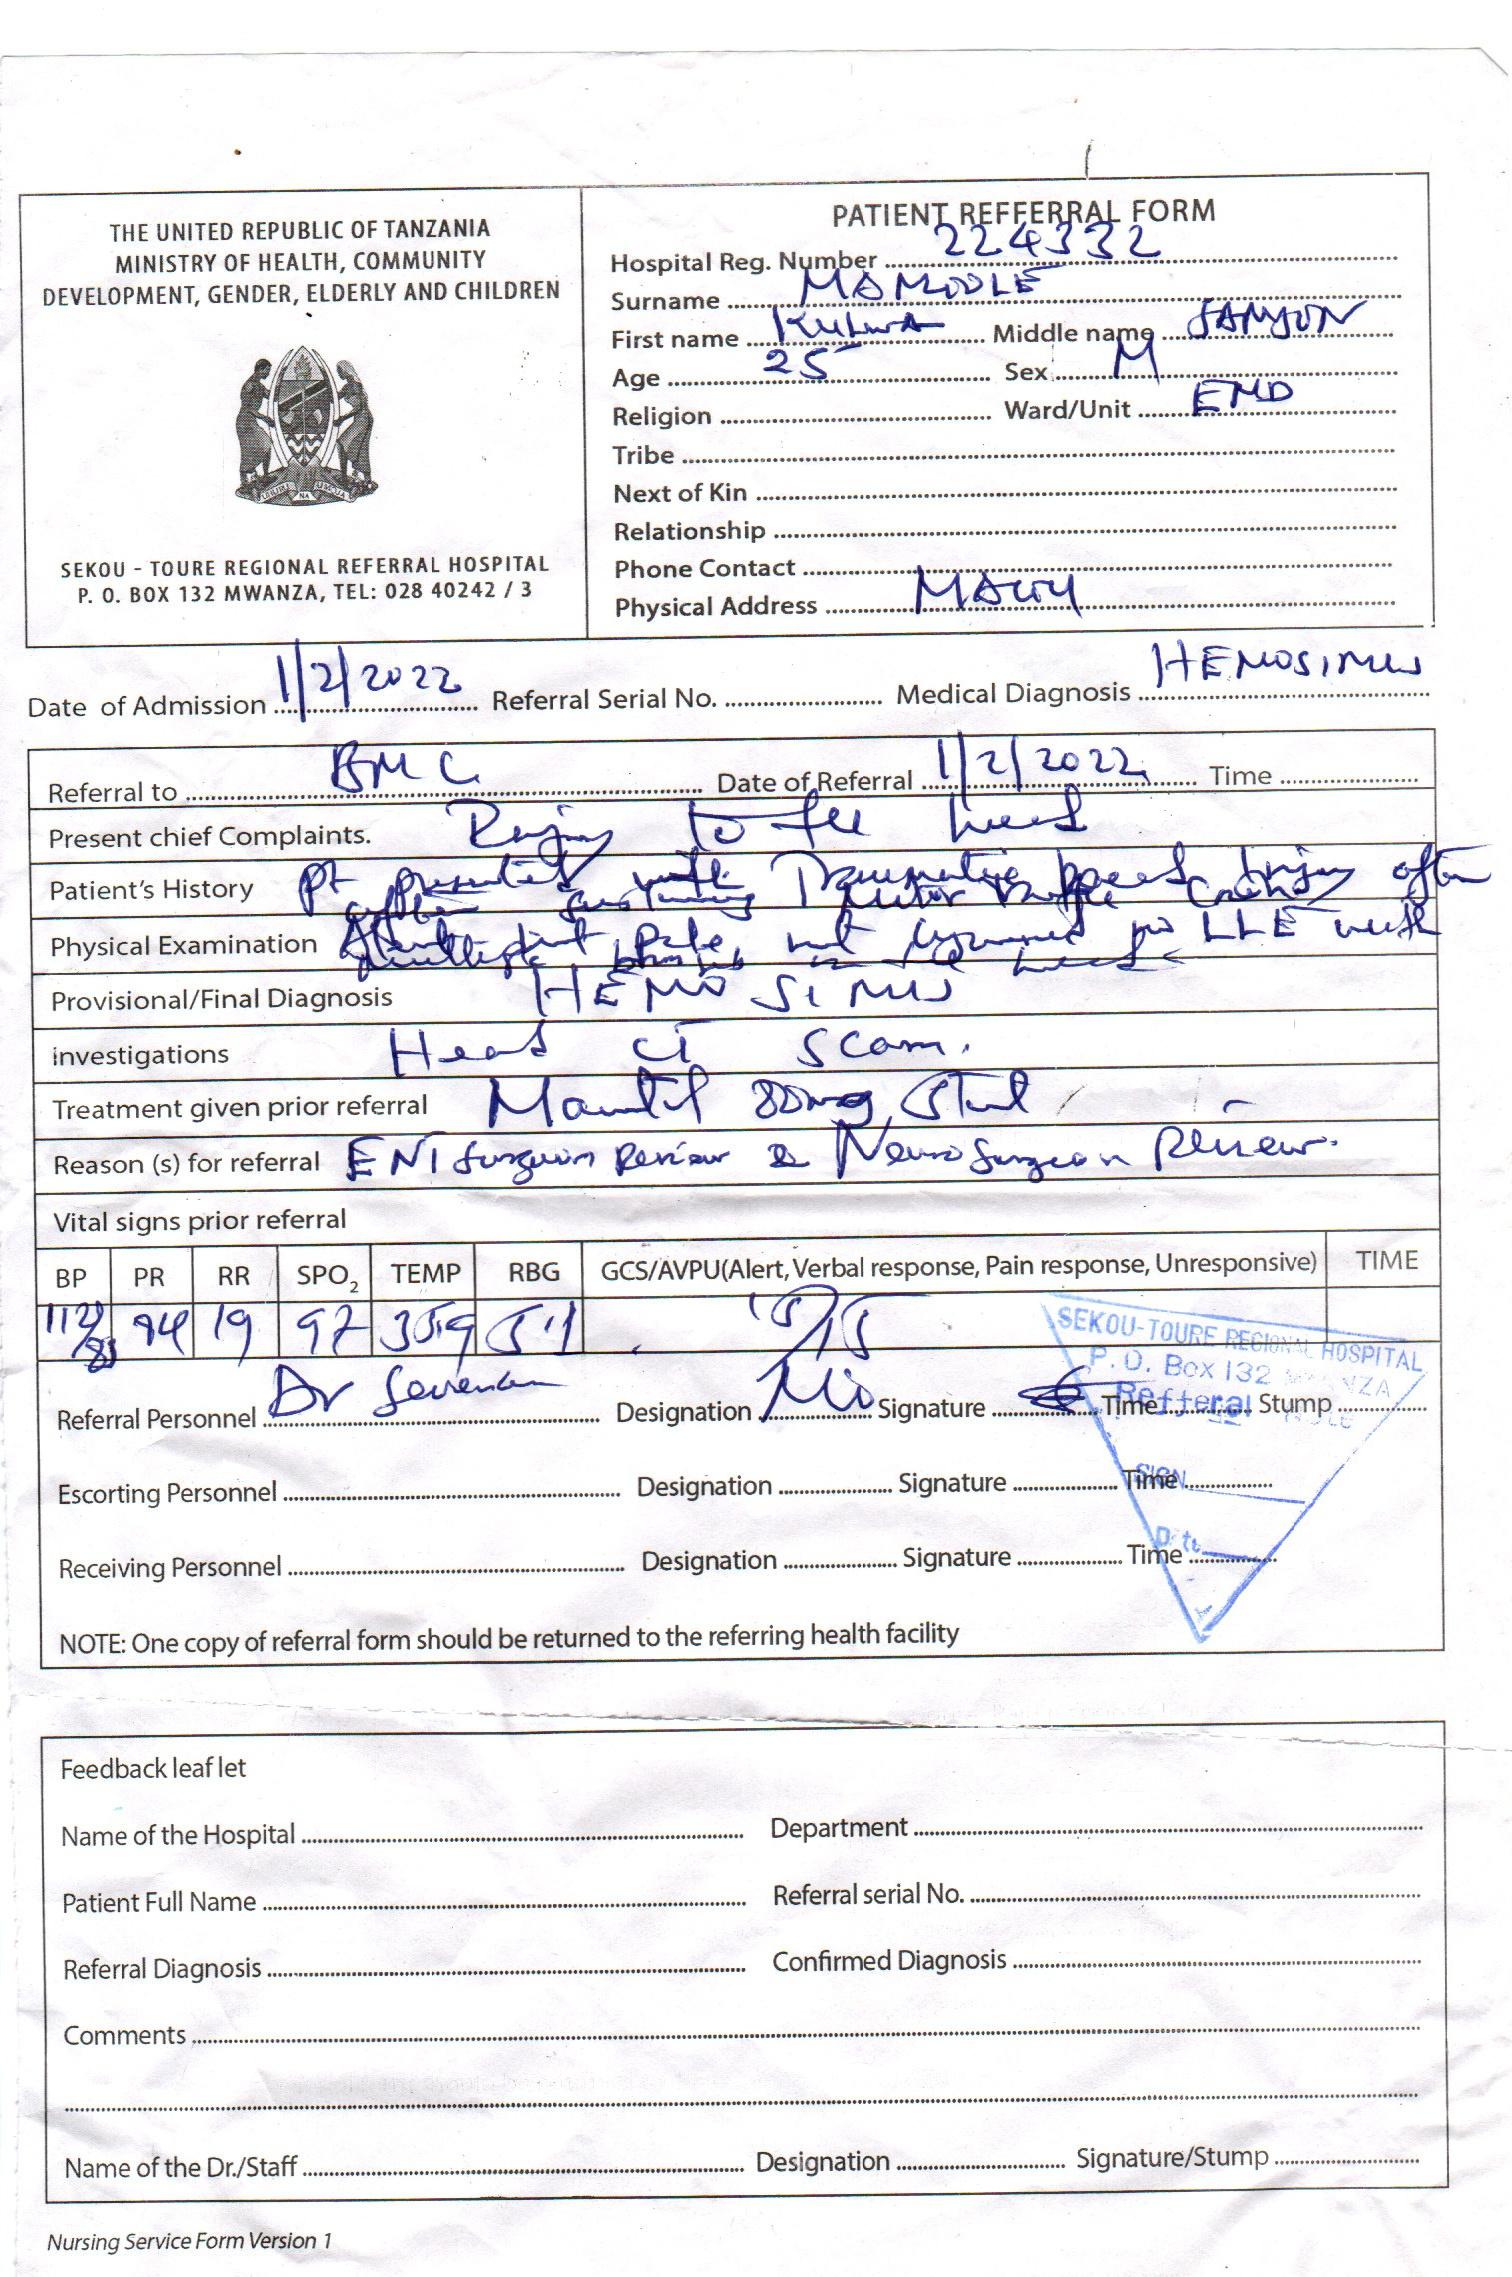 THE UNITED REPUBLIC OF TANZANIA
MINISTRY OF HEALTH, COMMUNITY
DEVELOPMENT, GENDER, ELDERLY AND CHILDREN
UHURU NA UMOJA
SEKOU - TOURE REGIONAL REFERRAL HOSPITAL
P. O. BOX 132 MWANZA, TEL: 028 40242 / 3
PATIENT REFFERRAL FORM
Hospital Reg. Number 224332
Surname
First name KULWA Middle name
Age 25 Sex M
Religion Ward/Unit EMD
Tribe
Next of Kin
Relationship
Phone Contact
Physical Address
Date of Admission 1/2/2022 Referral Serial No. Medical Diagnosis HEMOSINUS
Referral to BMC Date of Referral 1/2/2022 Time
Present chief Complaints. to the head
Patient's History pt presented with Traumatic head injury after
after sustaining Motor traffic crash
Physical Examination pale, not LLE with
multiple in the head
Provisional/Final Diagnosis HEMOSINUS
investigations Head CT Scan.
Treatment given prior referral stat
Reason (s) for referral ENT Surgeon Review & NeuroSurgeon Review.
Vital signs prior referral
BP PR RR SPO2 TEMP RBG GCS/AVPU(Alert, Verbal response, Pain response, Unresponsive) TIME
112/83 94 19 97 35.9 5.1 15/15
Referral Personnel Dr Designation Signature Time Stump
Escorting Personnel Designation Signature Time
Receiving Personnel Designation Signature Time
SEKOU-TOURE REGIONAL HOSPITAL
P. O. Box 132 MWANZA
Refferal
SIGN
Date
NOTE: One copy of referral form should be returned to the referring health facility
Feedback leaf let
Name of the Hospital Department
Patient Full Name Referral serial No.
Referral Diagnosis Confirmed Diagnosis
Comments
Name of the Dr./Staff Designation Signature/Stump
Nursing Service Form Version 1